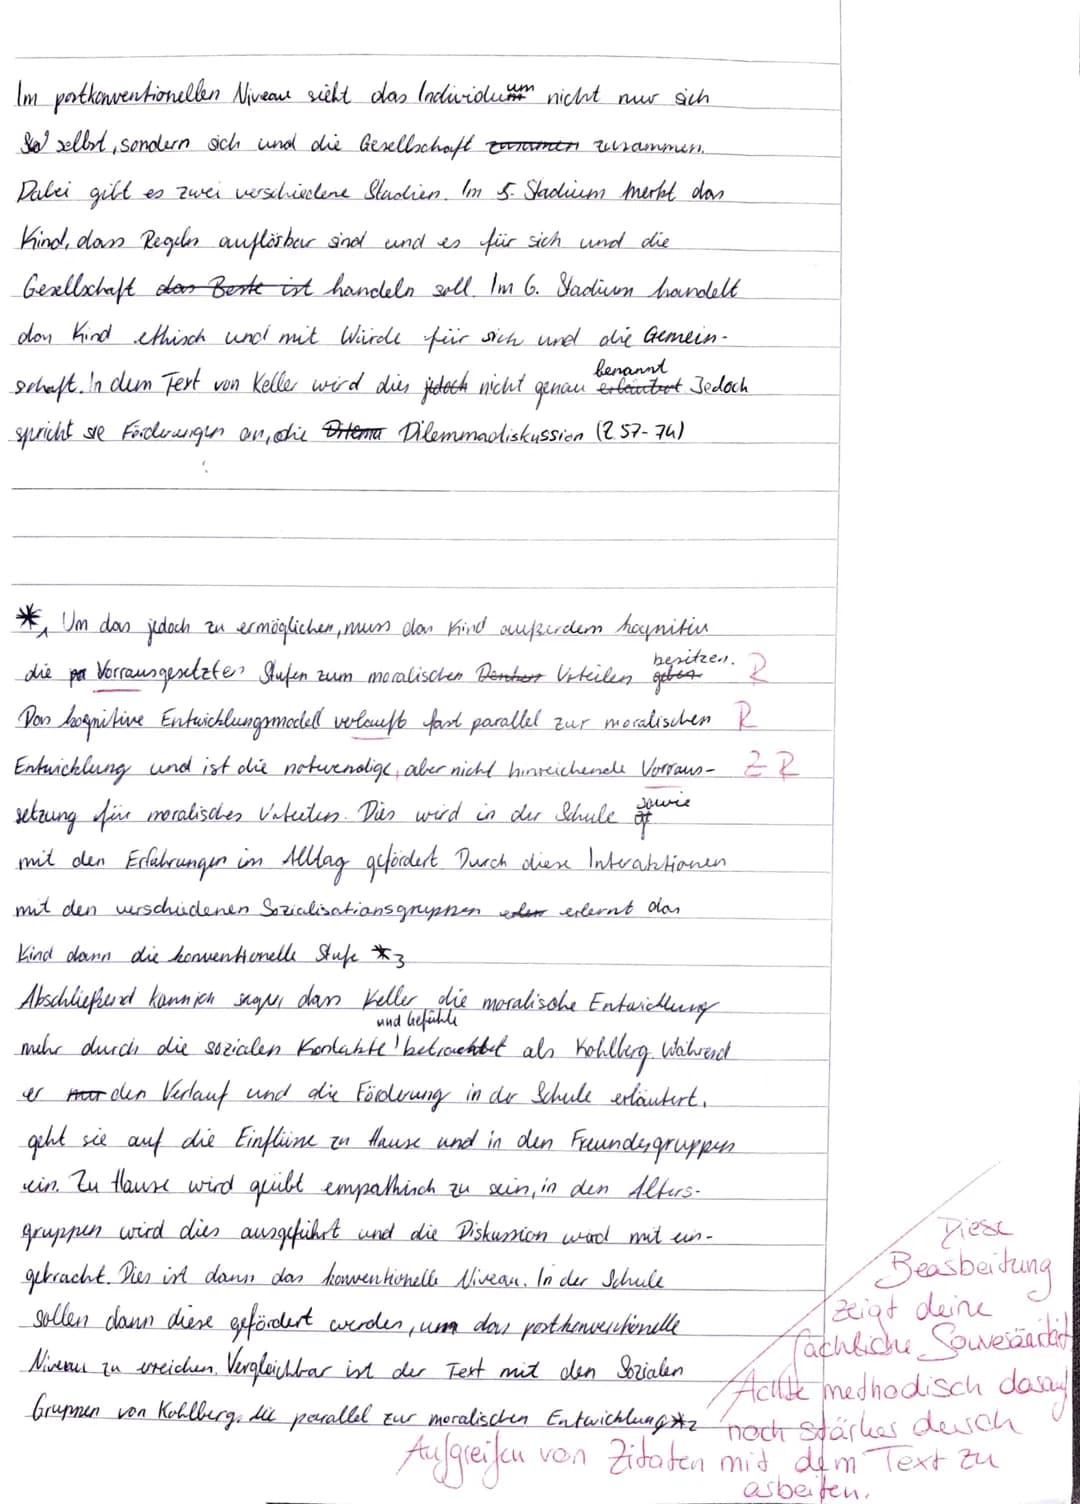 Im postkonventionellen Niveau sieht das Individuum nicht nur sich
selbst, sondern sich und die Gesellschaft zusammen zusammen.
Dabei gibt es zwei verschiedene Stadien. Im 5. Stadium merkt das
Kind, dass Regeln auflösbar sind und es für sich und die
Gesellschaft das Beste ist handeln soll. Im 6. Stadium handelt
das Kind ethisch und mit Würde für sich und die Gemein-
benannt
schaft. In dem Text von Keller wird dies jedoch nicht genau erläutert Jedoch
spricht sie Förderungen an, die Dilemmadiskussion (Z 57-74)
*1 Um das jedoch zu ermöglichen, muss das Kind außerdem kognitiv
besitzen.
die Vorrausgesetzten Stufen zum moralischen Denken Urteilen geben R
Das kognitive Entwicklungsmodell verlauft fast parallel zur moralischen R
Entwicklung und ist die notwendige, aber nicht hinreichende Vorraus- Z R
sowie
setzung für moralisches Urteilen. Dies wird in der Schule
mit den Erfahrungen im Alltag gefördert. Durch diese Interaktionen
mit den verschiedenen Sozialisationsgruppen erlernt das
Kind dann die konventionelle Stufe *3
Abschließend kann ich sagen, dass Keller die moralische Entwicklung
und Gefühle
mehr durch die sozialen Kontakte betrachtet als Kohlberg. Während
er nur den Verlauf und die Förderung in der Schule erläutert,
geht sie auf die Einflüsse zu Hause und in den Freundesgruppen
ein. Zu Hause wird geübt empathisch zu sein, in den Alters-
gruppen wird dies ausgeführt und die Diskussion wird mit ein-
gebracht. Dies ist dann das konventionelle Niveau. In der Schule
sollen dann diese gefördert werden, um das postkonventionelle
Niveau zu erreichen. Vergleichbar ist der Text mit den Sozialen
Gruppen von Kohlberg, die parallel zur moralischen Entwicklung *2
Diese
Bearbeitung
zeigt deine
fachliche Souveränität
Achte methodisch darauf
noch stärker durch
Aufgreifen von Zitaten mit dem Text zu
arbeiten.